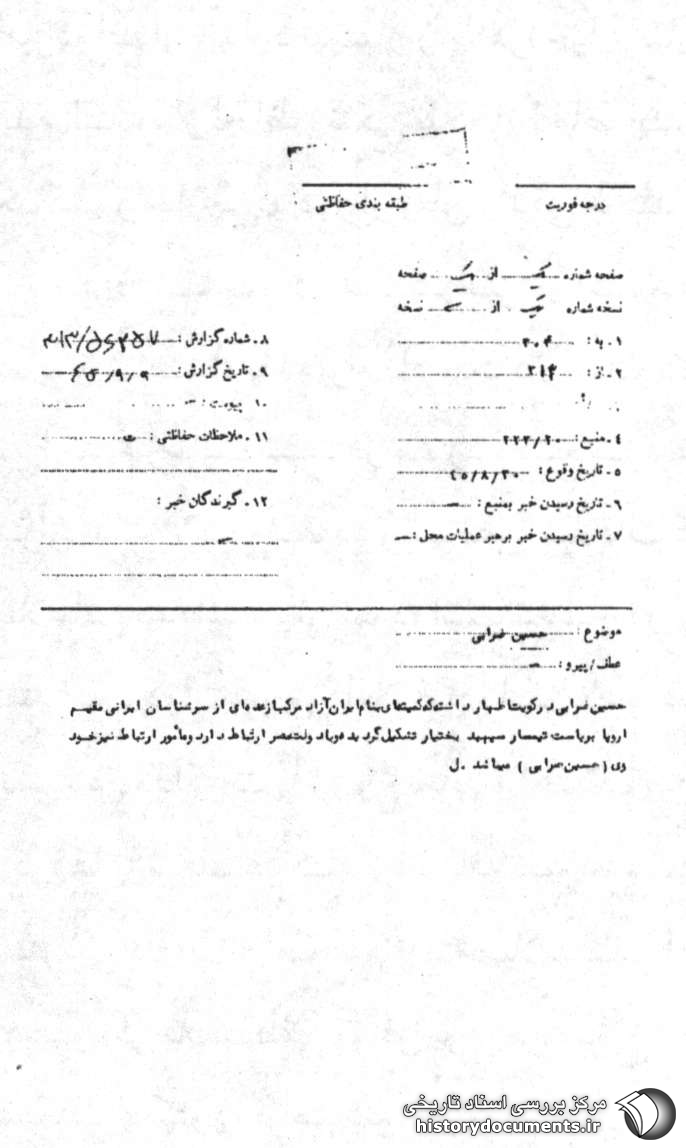 درجه فوریت
طبقه بندی حفاظتی
صفحه شماره یک از یک صفحه
نسخه شماره یک از نسخه
۱ـ به : ۳۰۴
۲ـ از : ۳۱۴
۴ـ منبع : ۲۲۳/۲۰
۵ـ تاریخ وقوع : ۴۵/۸/۳۰
۶ـ تاریخ رسیدن خبر بمنبع : ـ
۷ـ تاریخ رسیدن خبر برهبر عملیات محل : ـ
۸ـ شماره گزارش :
۹ـ تاریخ گزارش : ۴۵/۹/۹
۱۰ پیوست : ـ
۱۱ـ ملاحظات حفاظتی :
۱۲ـ گیرندگان خبر :
موضوع : حسین ضرابی
عطف/پیرو : ـ
حسین ضرابی در کویت اظهار داشته که کمیته‌ای بنام ایران آزاد مرکب از عده‌ای از سرشناسان ایرانی مقیم
اروپا بریاست تیمسار سپهبد بختیار تشکیل گردیده و با دولت مصر ارتباط دارد و مأمور ارتباط نیز خود
وی (حسین ضرابی) میباشد .ل
مرکز بررسی اسناد تاریخی
historydocuments.ir